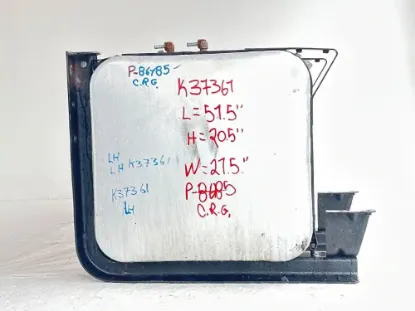 P-86485
C.R.G.
K37361
L=57.5"
H=20.5"
W=27.5"
P-8685
C.R.G.
LH
LH K37361
K37361
LH